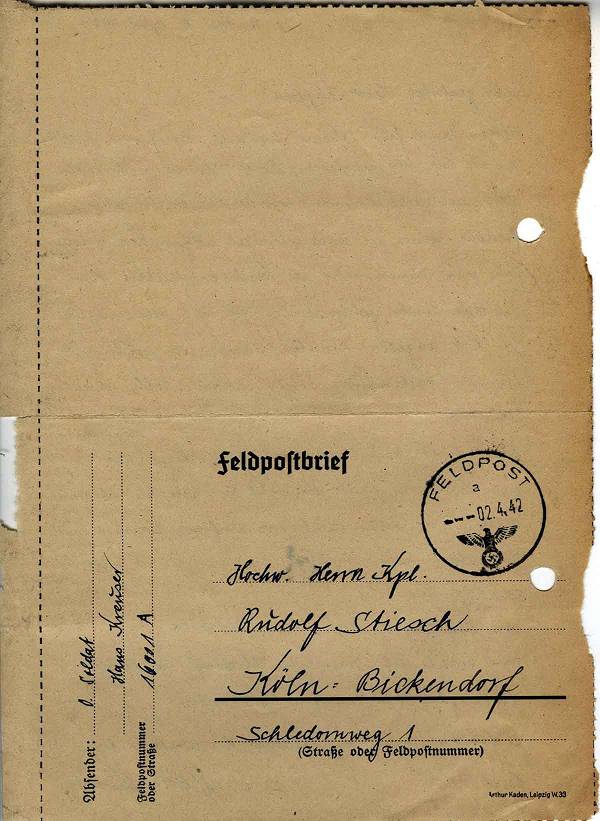 Feldpostbrief
FELDPOST
a
---02.4.42
Hochw. Herrn Kpl.
Rudolf Stiesch
Köln-Bickendorf
Schledornweg 1
(Straße oder Feldpostnummer)
Absender: Soldat
Hans Kreuser
16021 A
Feldpostnummer
oder Straße
Arthur Kaden, Leipzig W.33